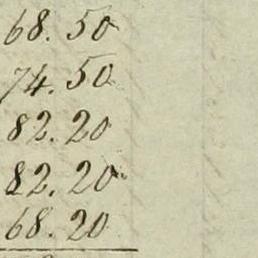 68. 50
74. 50
82. 20
82. 20
68. 20